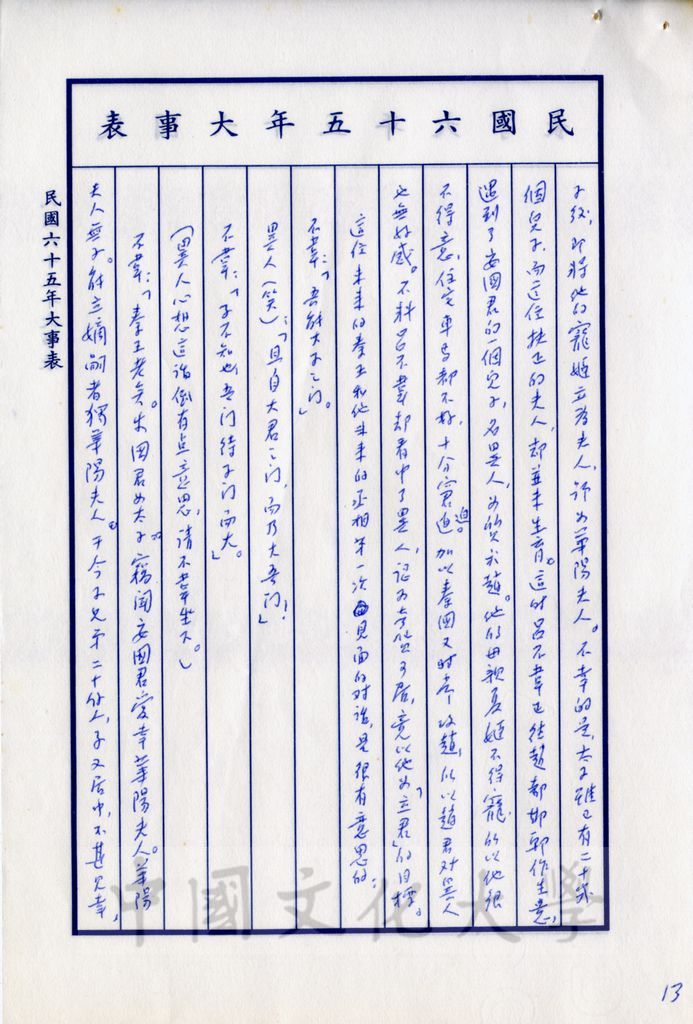 民國六十五年大事表
子後，即將他的寵姬立為夫人，許為華陽夫人。不幸的是，太子雖已有二十幾
個兒子，而這位扶正的夫人，却並未生育。這時呂不韋正往趙都邯鄲作生意，
遇到了安國君的一個兒子，名異人，為質於趙。他的母親夏姬不得寵，所以他很
不得意，住宅車馬都不好，十分窘迫。加以秦國又時常攻趙，所以趙君對異人
也無好感。不料呂不韋却看中了異人，認為奇貨可居，竟以他為「立君」的目標。
這位未來的秦王和他未來的丞相第一次見面的對話，是很有意思的：
不韋：「吾能大子之門。」
異人（笑）：「且自大君之門，而乃大吾門！」
不韋：「子不知也，吾門待子門而大。」
（異人心想這話倒有点意思，請不韋坐下。）
不韋：「秦王老矣。安國君為太子。竊聞安國君愛幸華陽夫人。華陽
夫人無子。能立嫡嗣者獨華陽夫人。于今子兄弟二十餘人，子又居中，不甚見幸，
民國六十五年大事表
中國文化大學
13